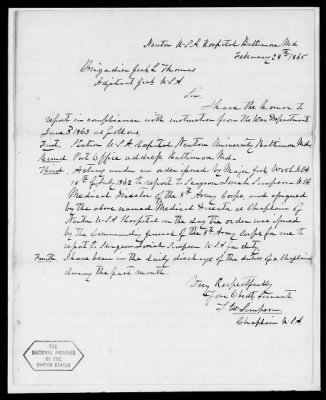 Newton U.S.A. Hospital Baltimore Md
February 28th/1865
Brigadier Genl L Thomas
Adjutant Genl U.S.A.
Sir
I have the honor to
report in compliance with instruction from the War Department
June 8 1863 as follows.
First Station U.S.A. Hospital Newton University Baltimore Md
Second Post Office address Baltimore Md.
Third Acting under an order issued by Major Genl
18th of July 1862 to report to Surgeon Josiah Simpson U.S.A.
Medical Director of the 8th Army Corps, and assigned
by the above named Medical Director as Chaplain of
Newton U.S.A. Hospital on the day the order was issued
by the Commanding general of the 8th Army Corps for me to
report to Surgeon Josiah Simpson U.S.A. for duty.
Fourth I have been in the daily discharge of the duties of a Chaplain
during the past month.
Very Respectfully
Your Obedt Servant
T. W. Simpson
Chaplain U.S.A.
THE
NATIONAL ARCHIVES
OF THE
UNITED STATES